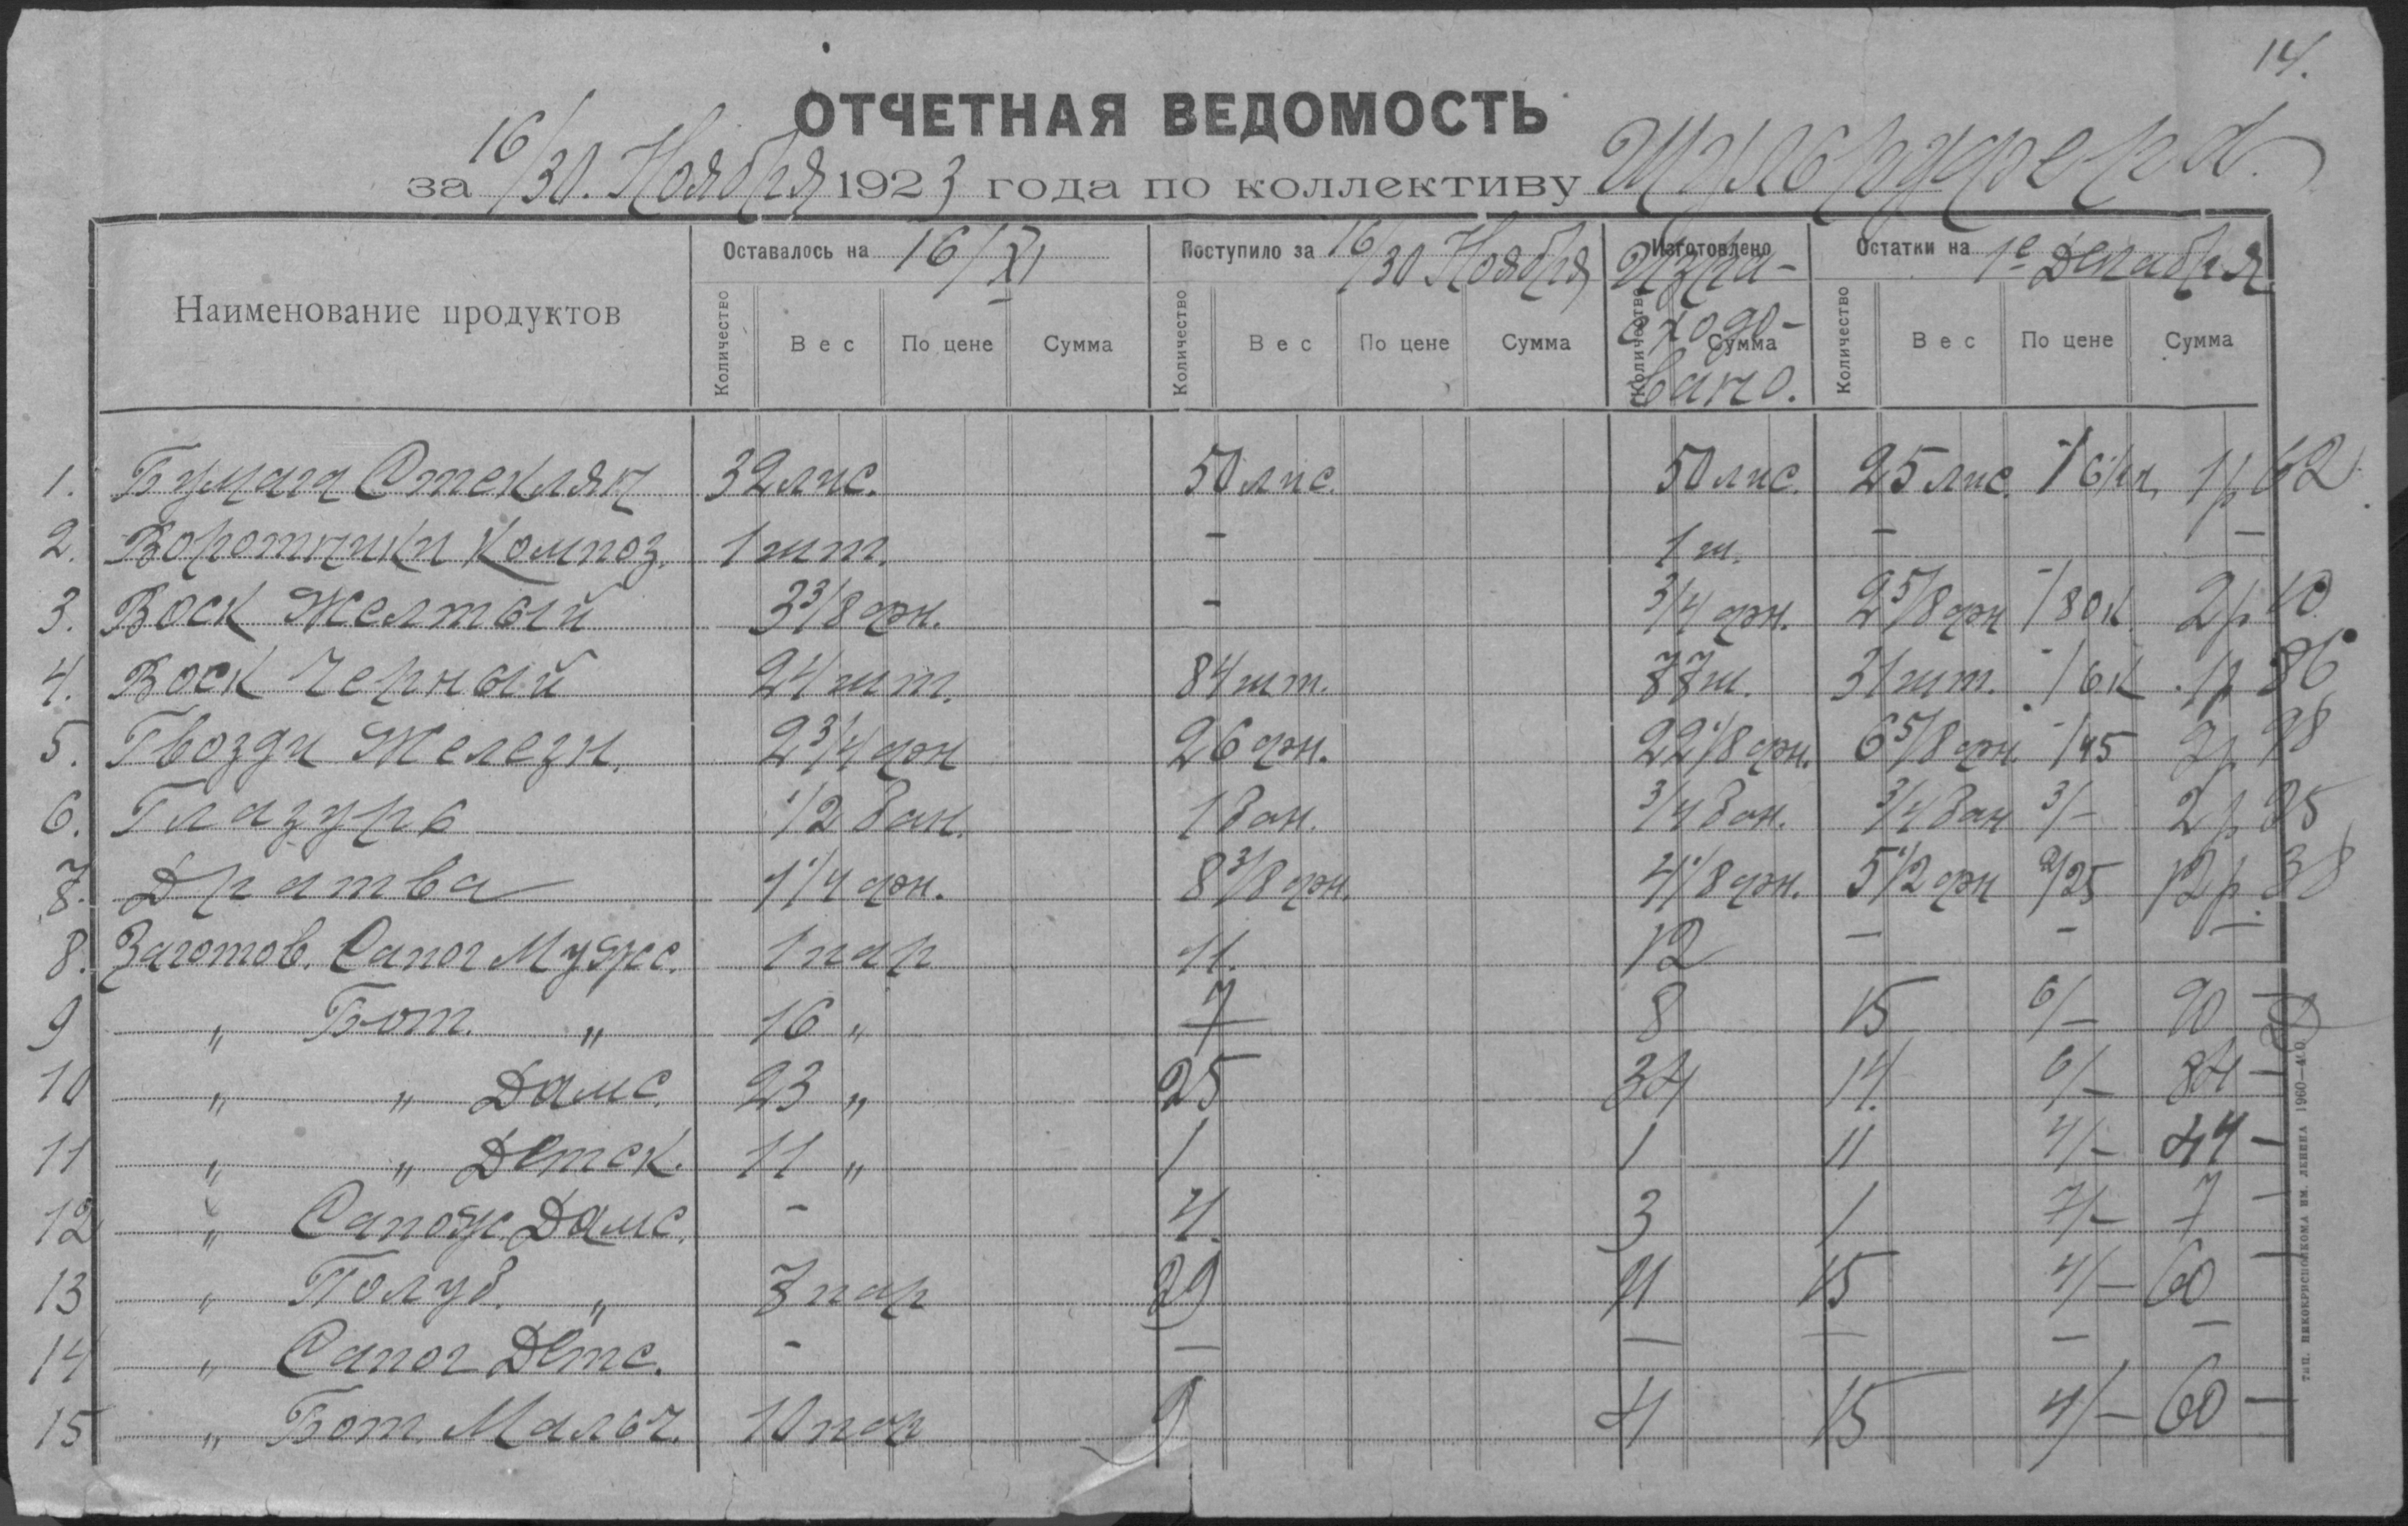 14.
ОТЧЕТНАЯ ВЕДОМОСТЬ
за 16/30. Ноября 1923 года по коллективу
Наименование продуктов Оставалось на 16/XI Поступило за 16/30 Ноября Изготовлено Израсходовано. Остатки на 1е Декабря
Количество Вес По цене Сумма Количество Вес По цене Сумма Количество Сумма Количество Вес По цене Сумма
1. Бумага Стеклян 32 лис. 50 лис. 50 лис. 25 лис. 1р 62
2. Воротнички Композ. 1 шт. - 1 ш. - -
3. Воск Желтый 3 3/8 фн. - 3/4 фн. 2 5/8 фн -/80к 2р 10
4. Воск Черный 24 шт. 84 шт. 77 ш. 31 шт. -/6к 1р 86
5. Гвозди Железн. 2 3/4 фн 26 фн. 22 1/8 фн. 6 5/8 фн. -/45 2р 98
6. Глазурь 1/2 бан. 1 бан. 3/4 бан. 3/4 бан 3/- 2р 25
7. Дратва 1 1/4 фн. 8 3/8 фн. 4 1/8 фн. 5 1/2 фн 2/25 12р. 38
8. Заготов. Сапог Мужс. 1 пар 11. 12 - - -
9 „ Бот. „ 16 „ 7 8 15 6/- 90 -
10 „ „ Дамс. 23 „ 25 34 14. 6/- 84 -
11 „ „ Детск. 11 „ 1 1 11 4/- 44 -
12 „ Сапож. Дамс. - 4. 3 1 7/- 7 -
13 „ Полуб. „ 7 пар 15 4/- 60 -
14 „ Сапог Детс. - - - - - -
15 „ Бот. Мальч. 10 пар 9 4 15 4/- 60 -
Тип. Винокрисполкома им. Ленина 1960—400